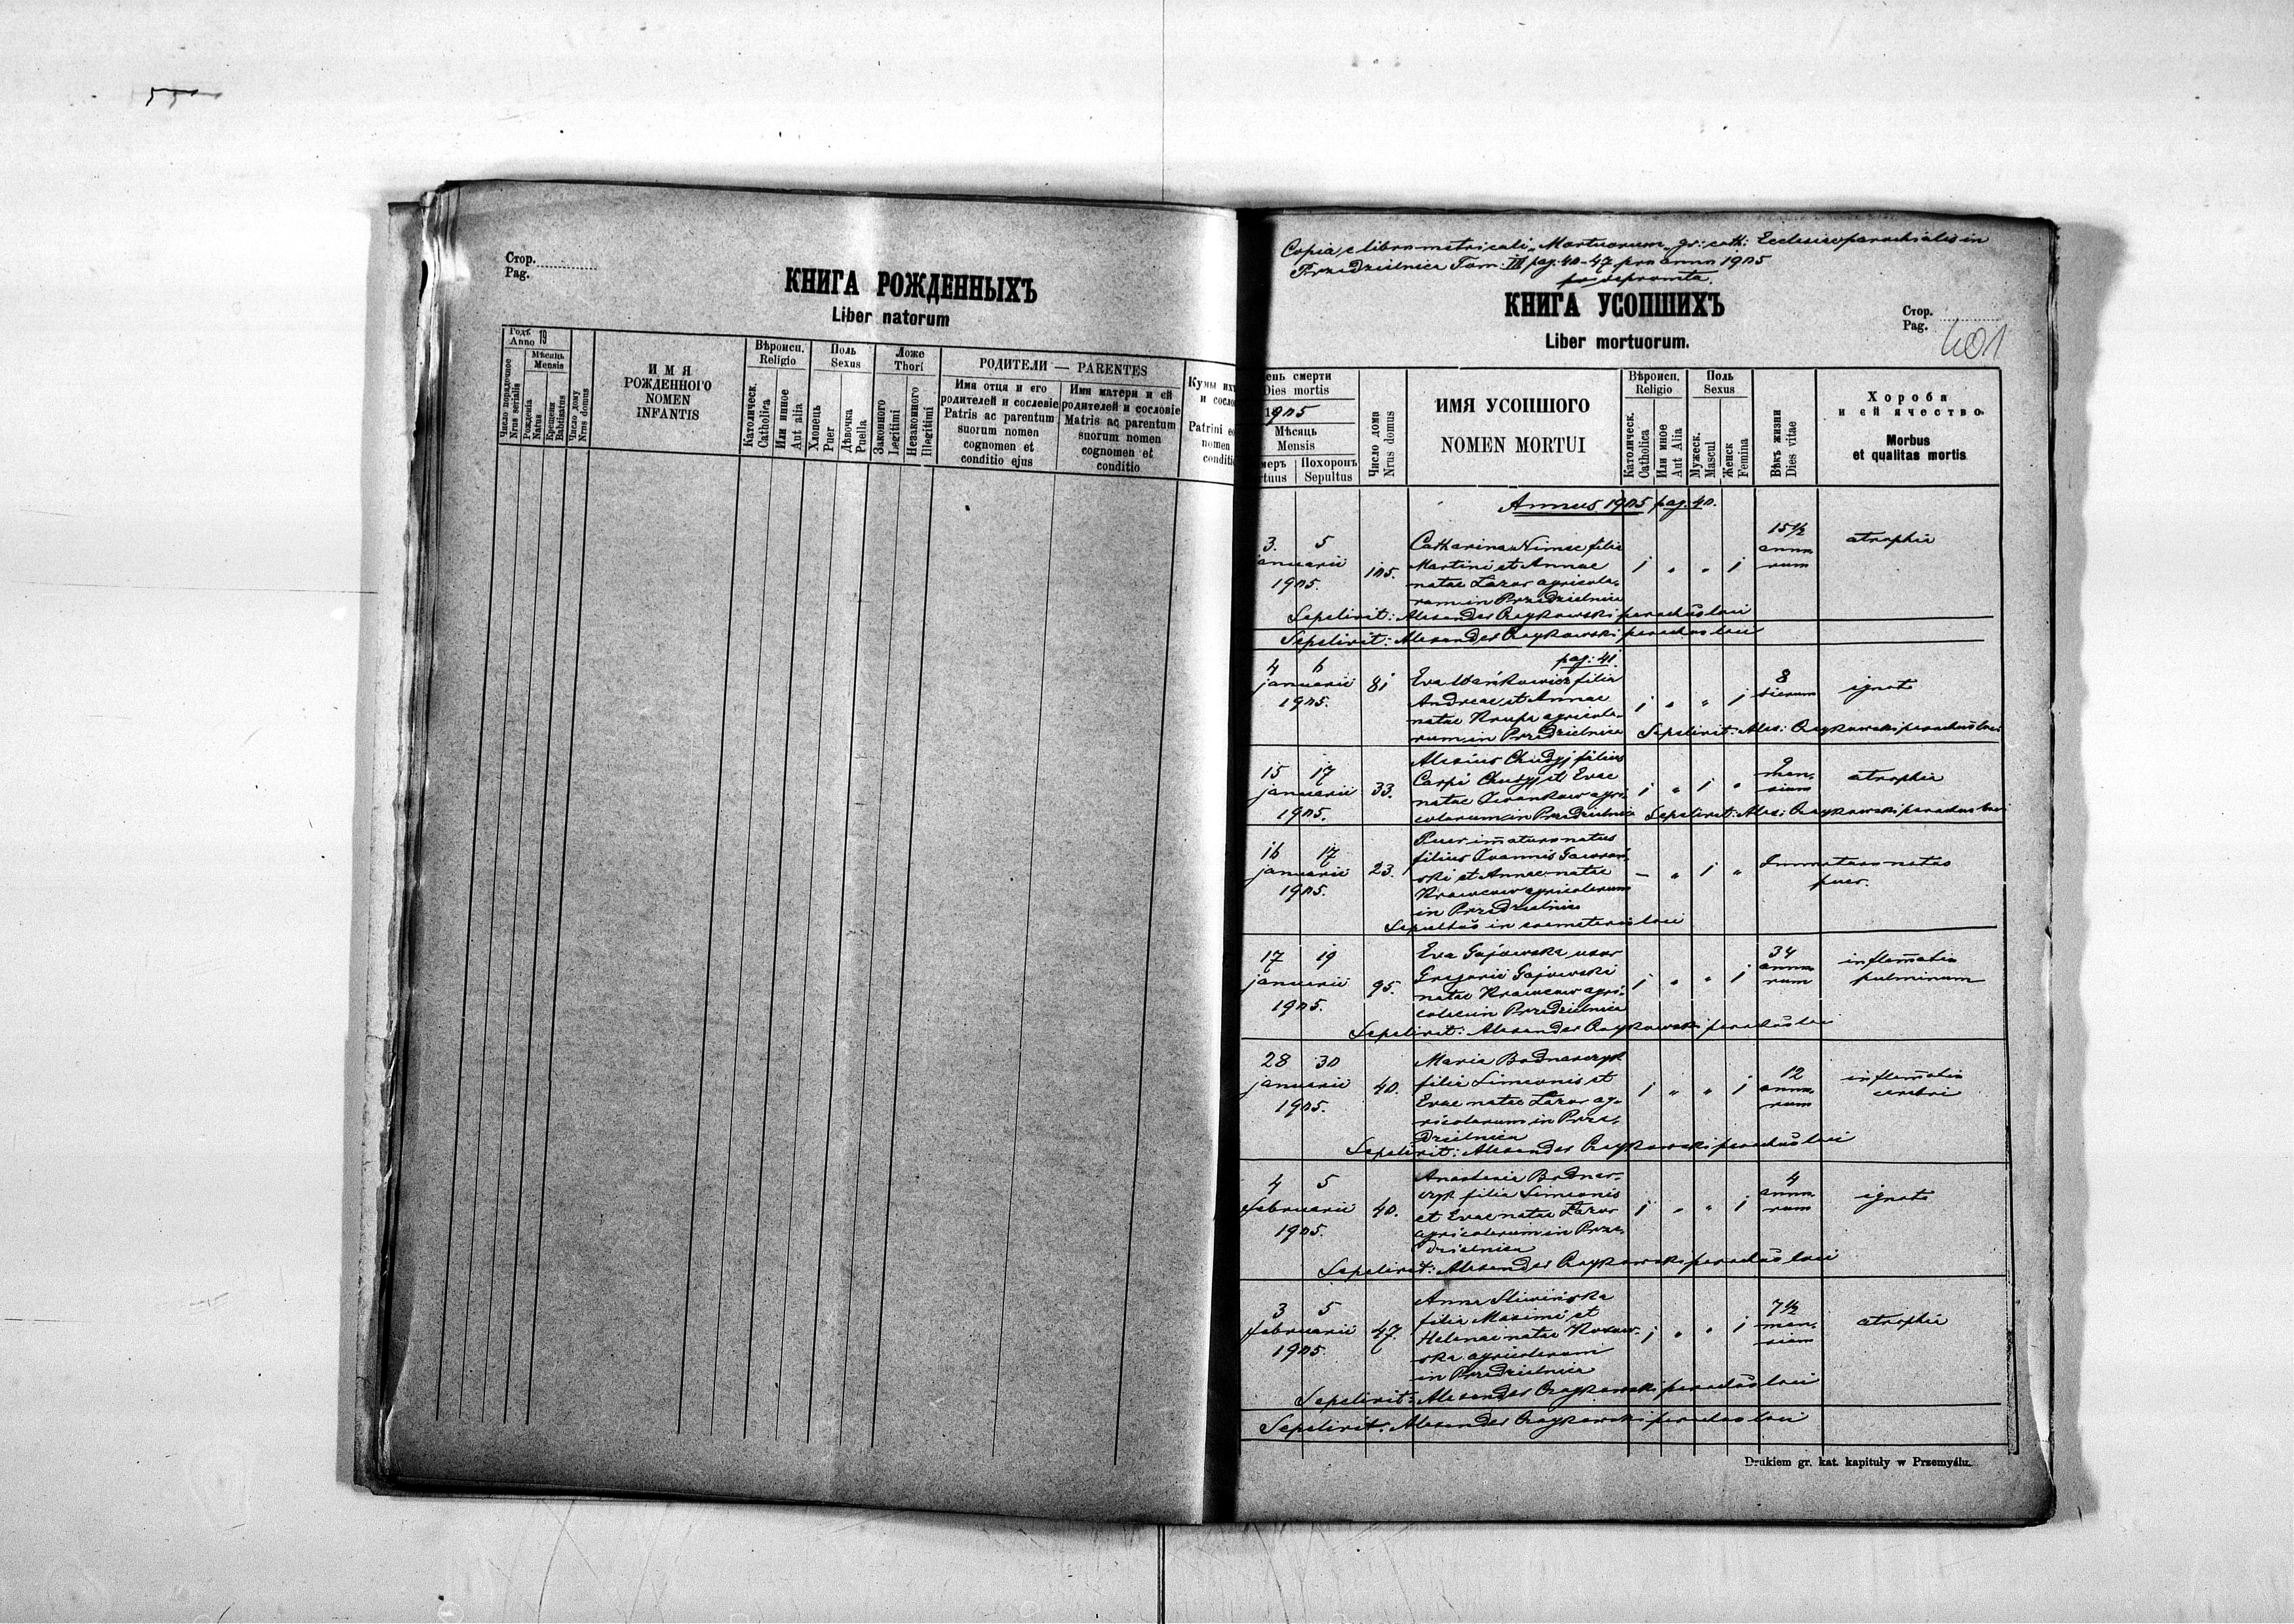 Стор.
Pag.
КНИГА РОЖДЕННЫХЪ
Liber natorum
Годъ 19
Anno
Мѣсяць
Mensis
Число порядочное
Nrus serialis
Рожденія
Natus
Крещенія
Babtisatus
Число дому
Nrus domus
ИМЯ
РОЖДЕННОГО
NOMEN
INFANTIS
Вѣроисп.
Religio
Католическ.
Catholica
Или инное
Aut alia
Поль
Sexus
Хлопець
Puer
Дѣвочка
Puella
Ложе
Thori
Законного
Legitimi
Незаконного
Illegitimi
РОДИТЕЛИ — PARENTES
Имя отця и его
родителей и сословіе
Patris ac parentum
suorum nomen
cognomen et
conditio ejus
Имя матери и ей
родителей и сословіе
Matris ac parentum
suorum nomen
cognomen et
conditio
Кумы их
и сосло
Patrini e
nomen
conditi
Copia e libro metricali „Mortuorum„ gr: cath: Ecclesiae parochialis in
Przedzielnica Tom: III pag: 40-47 pro anno 1905
depromta.
КНИГА УСОПШИХЪ
Liber mortuorum.
Стор.
Pag.
401
ень смерти
Dies mortis
1905
Мѣсяць
Mensis
меръ
rtuus
Похоронъ
Sepultus
Число дома
Nrus domus
ИМЯ УСОПШОГО
NOMEN MORTUI
Вѣроисп.
Religio
Католическ.
Catholica
Или иное
Aut Alia
Поль
Sexus
Мужеск.
Mascul
Женск
Femina
Вѣкъ жизни
Dies vitae
Хороба
и єй ячество
Morbus
et qualitas mortis
Annus 1905 pag: 40.
3. 5
januarii
1905.
105.
Catharina Nimec filia
Martini et Annae
natae Lazor agricola-
rum in Przedzielnica
1 „ „ 1
15 1/2
anno
rum
atrophia
Sepelivit: Alexander Czajkowski parochus loci
Sepelivit: Alexander Czajkowski parochus loci
pag: 41.
4 6
januarii
1905.
81
Eva Wańkowicz filia
Andreae et Annae
natae Krupa agricola-
rum in Przedzielnica
1 „ „ 1
8
dierum
ignota
Sepelivit: Alex: Czajkowski parochus loci
15 17
januarii
1905.
33.
Alexius Chudyj filius
Carpi Chudyj et Evae
natae Iwankow agri-
colarum in Przedzielnica
1 „ 1 „
men-
sium
atrophia
Sepelivit: Alex: Czajkowski parochus loci
16 17
januarii
1905.
23.
Puer immature natus
filius Joannis Gawroń-
ski et Annae natae
Krawcow agricolarum
in Przedzielnica
— „ 1 „
Immature natus
puer.
Sepultus in coemeterio loci
17 19
januarii
1905.
95.
Eva Gajowska uxor
Gregorii Gajowski
natae Krawcow agri-
colae in Przedzielnica
1 „ „ 1
34
anno
rum
inflam̄atio
pulminum
Sepelivit: Alexander Czajkowski parochus loci
28 30
januarii
1905.
40.
Maria Bodnarczyk
filia Simeonis et
Evae natae Lazor ag-
ricolarum in Prze-
dzielnica
1 „ „ 1
12
anno-
rum
inflam̄atio
cerebri
Sepelivit: Alexander Czajkowski parochus loci
4 5
februarii
1905.
40.
Anastasia Bodnar-
czyk filia Simeonis
et Evae natae Lazor
agricolarum in Prze-
dzielnica
1 „ „ 1
4
anno
rum
ignota
Sepelivit: Alexander Czajkowski parochus loci
3 5
februarii
1905.
47.
Anna Sliwińska
filia Maximi et
Helenae natae Kozow-
ska agricolarum
in Przedzielnica
1 „ „ 1
7 1/2
men-
sium
atrophia
Sepelivit: Alexander Czajkowski parochus loci
Sepelivit: Alexander Czajkowski parochus loci
Drukiem gr. kat. kapituły w Przemyślu.